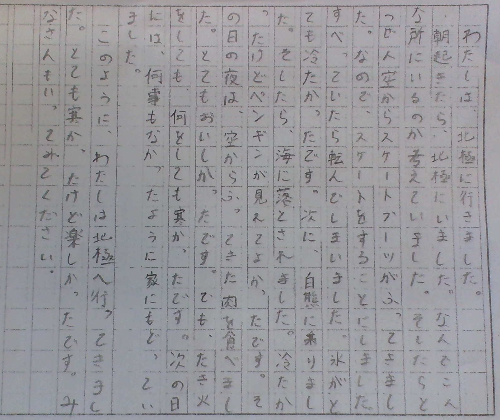 わたしは、北極に行きました。
朝起きたら、北極にいました。なんでこん
な所にいるのか考えていました。そしたらと
つぜん空からスケートブーツがふってきまし
た。なので、スケートをすることにしました
すべっていたら転んでしまいました。氷がと
ても冷たかったです。次に、白熊に乗りまし
た。そしたら、海に落とされました。冷たか
ったけどペンギンが見れてよかったです。そ
の日の夜は空からふってきた肉を食べまし
た。とてもおいしかったです。でも、たき火
をしても、何をしても寒かったです。次の日
には、何事もなかったように家にもどってい
ました。
このように、わたしは北極へ行ってきまし
た。とても寒かったけど楽しかったです。み
なさんもいってみてください。